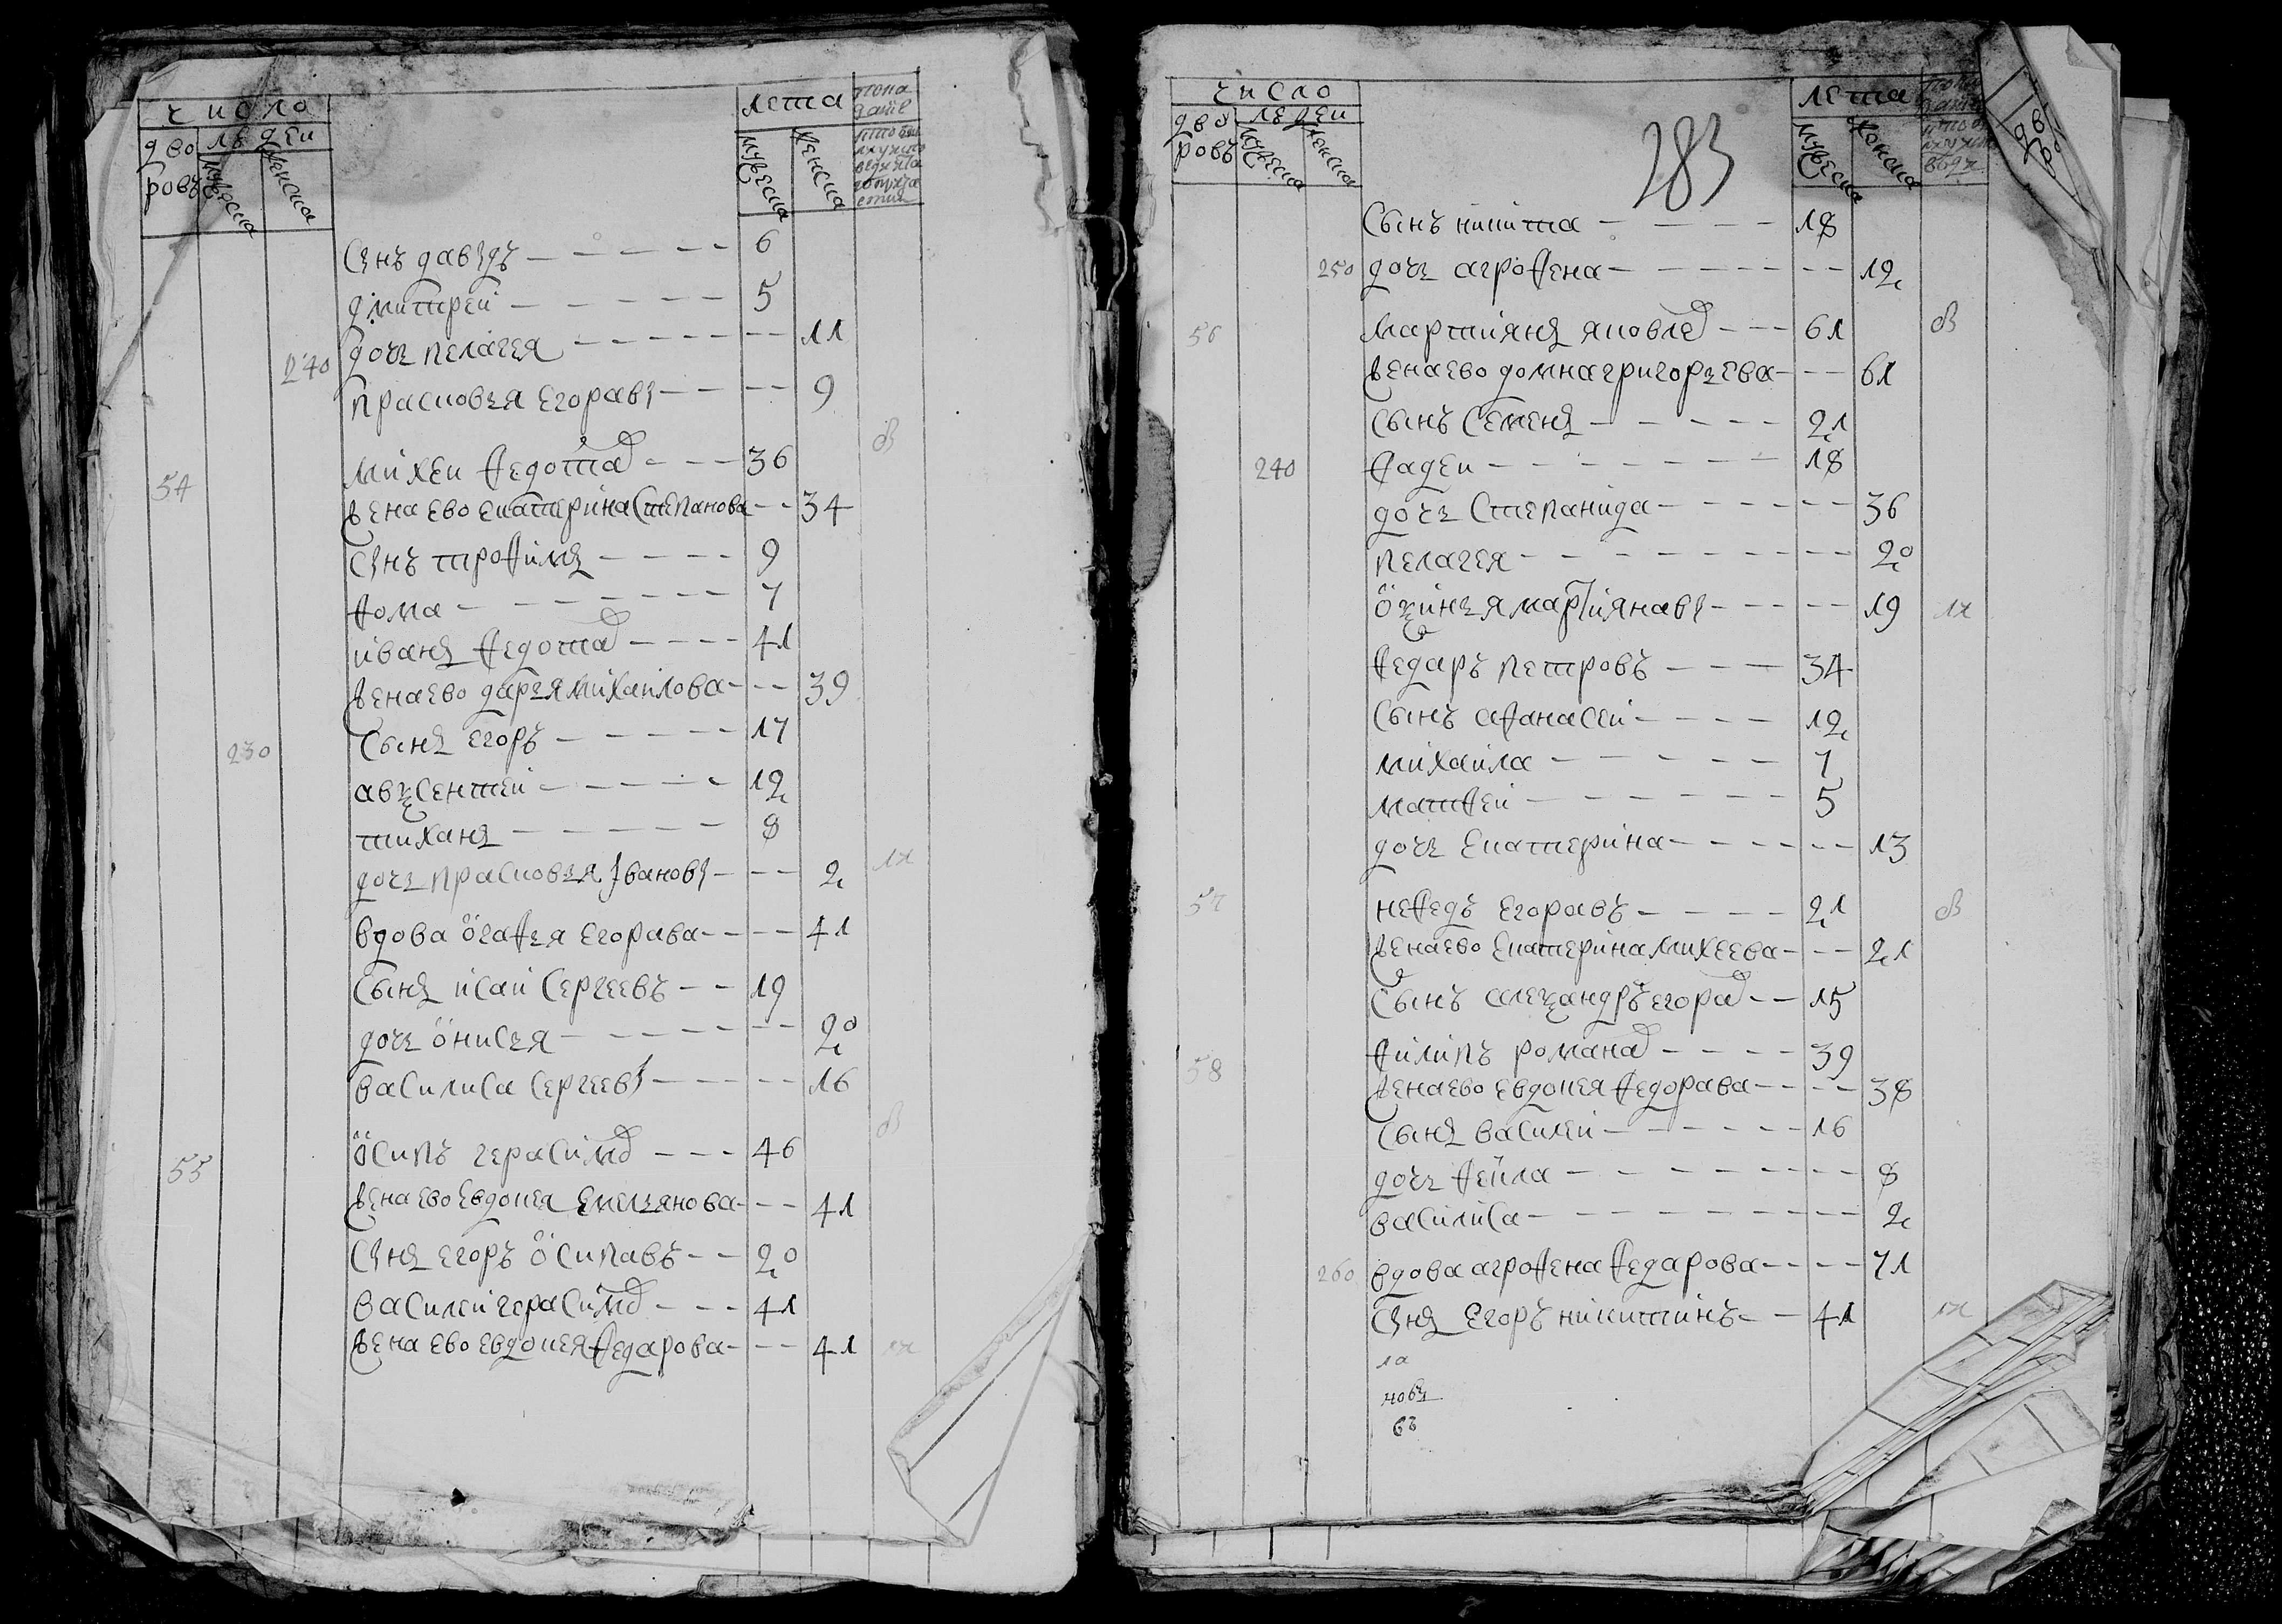 число
лета
дво
людеи
ровъ
мужеска
женска
мужеска
женска
сынъ давыдъ 6
дмитреи 5
240 дочь пелагея 11
прасковья егоравы 9
54 михеи федотов 36
жена ево екатерина степанова 34
сынъ трофимъ 9
фома 7
иванъ федотов 41
жена ево дарья михаилова 39
230 сынъ егоръ 17
авксентеи 12
тиханъ 8
дочь прасковья ивановы 2
вдова огафья егорава 41
сынъ исаи сергеевъ 19
дочь онисья 20
василиса сергеевы 16
55 осипъ герасимов 46
жена ево евдокея емельянова 41
сынъ егоръ осипавъ 20
василеи герасимов 41
жена ево евдокея федарова 41
283
число
лета
дво
людеи
ровъ
мужеска
женска
мужеска
женска
сынъ никита 18
250 дочь агрофена 12
56 мартиянъ яковлев 61
жена ево домна григорьева 61
сынъ семенъ 21
240 фадеи 18
дочь степанида 36
пелагея 20
оксинья мартиянавы 19
федаръ петровъ 34
сынъ афанасеи 12
михаила 7
матфеи 5
дочь екатерина 13
57 нефедъ егоравъ 21
жена ево екатерина михеева 21
сынъ александръ егорав 15
58 филипъ романав 39
жена ево евдокея федорава 38
сынъ василеи 16
дочь фекла 8
василиса 2
260 вдова агрофена федарова 71
сынъ егоръ никитинъ 41